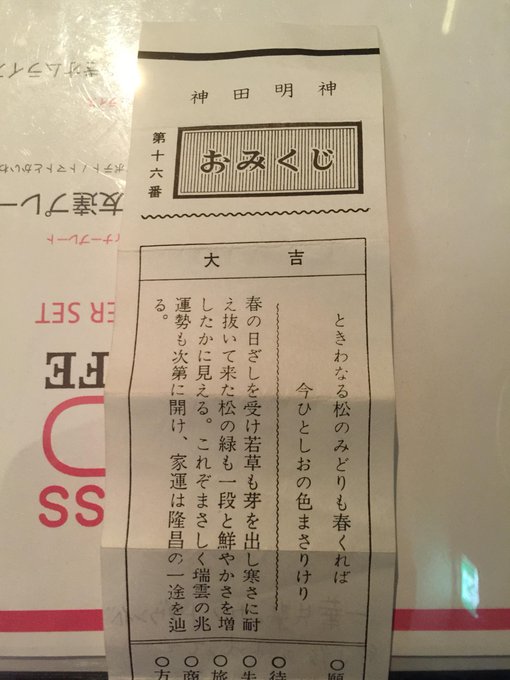 神田明神
第十六番
おみくじ
大吉
ときわなる松のみどりも春くれば
今ひとしおの色まさりけり
春の日ざしを受け若草も芽を出し寒さに耐
え抜いて来た松の緑も一段と鮮やかさを増
したかに見える。これぞまさしく瑞雲の兆
運勢も次第に開け、家運は隆昌の一途を辿
る。
○願
○待
○失
○旅
○商
○方
SS
FE
ER SET
ィナープレート
友達プレー
ポテト / トマトとかいわ
ライス
きオムライス